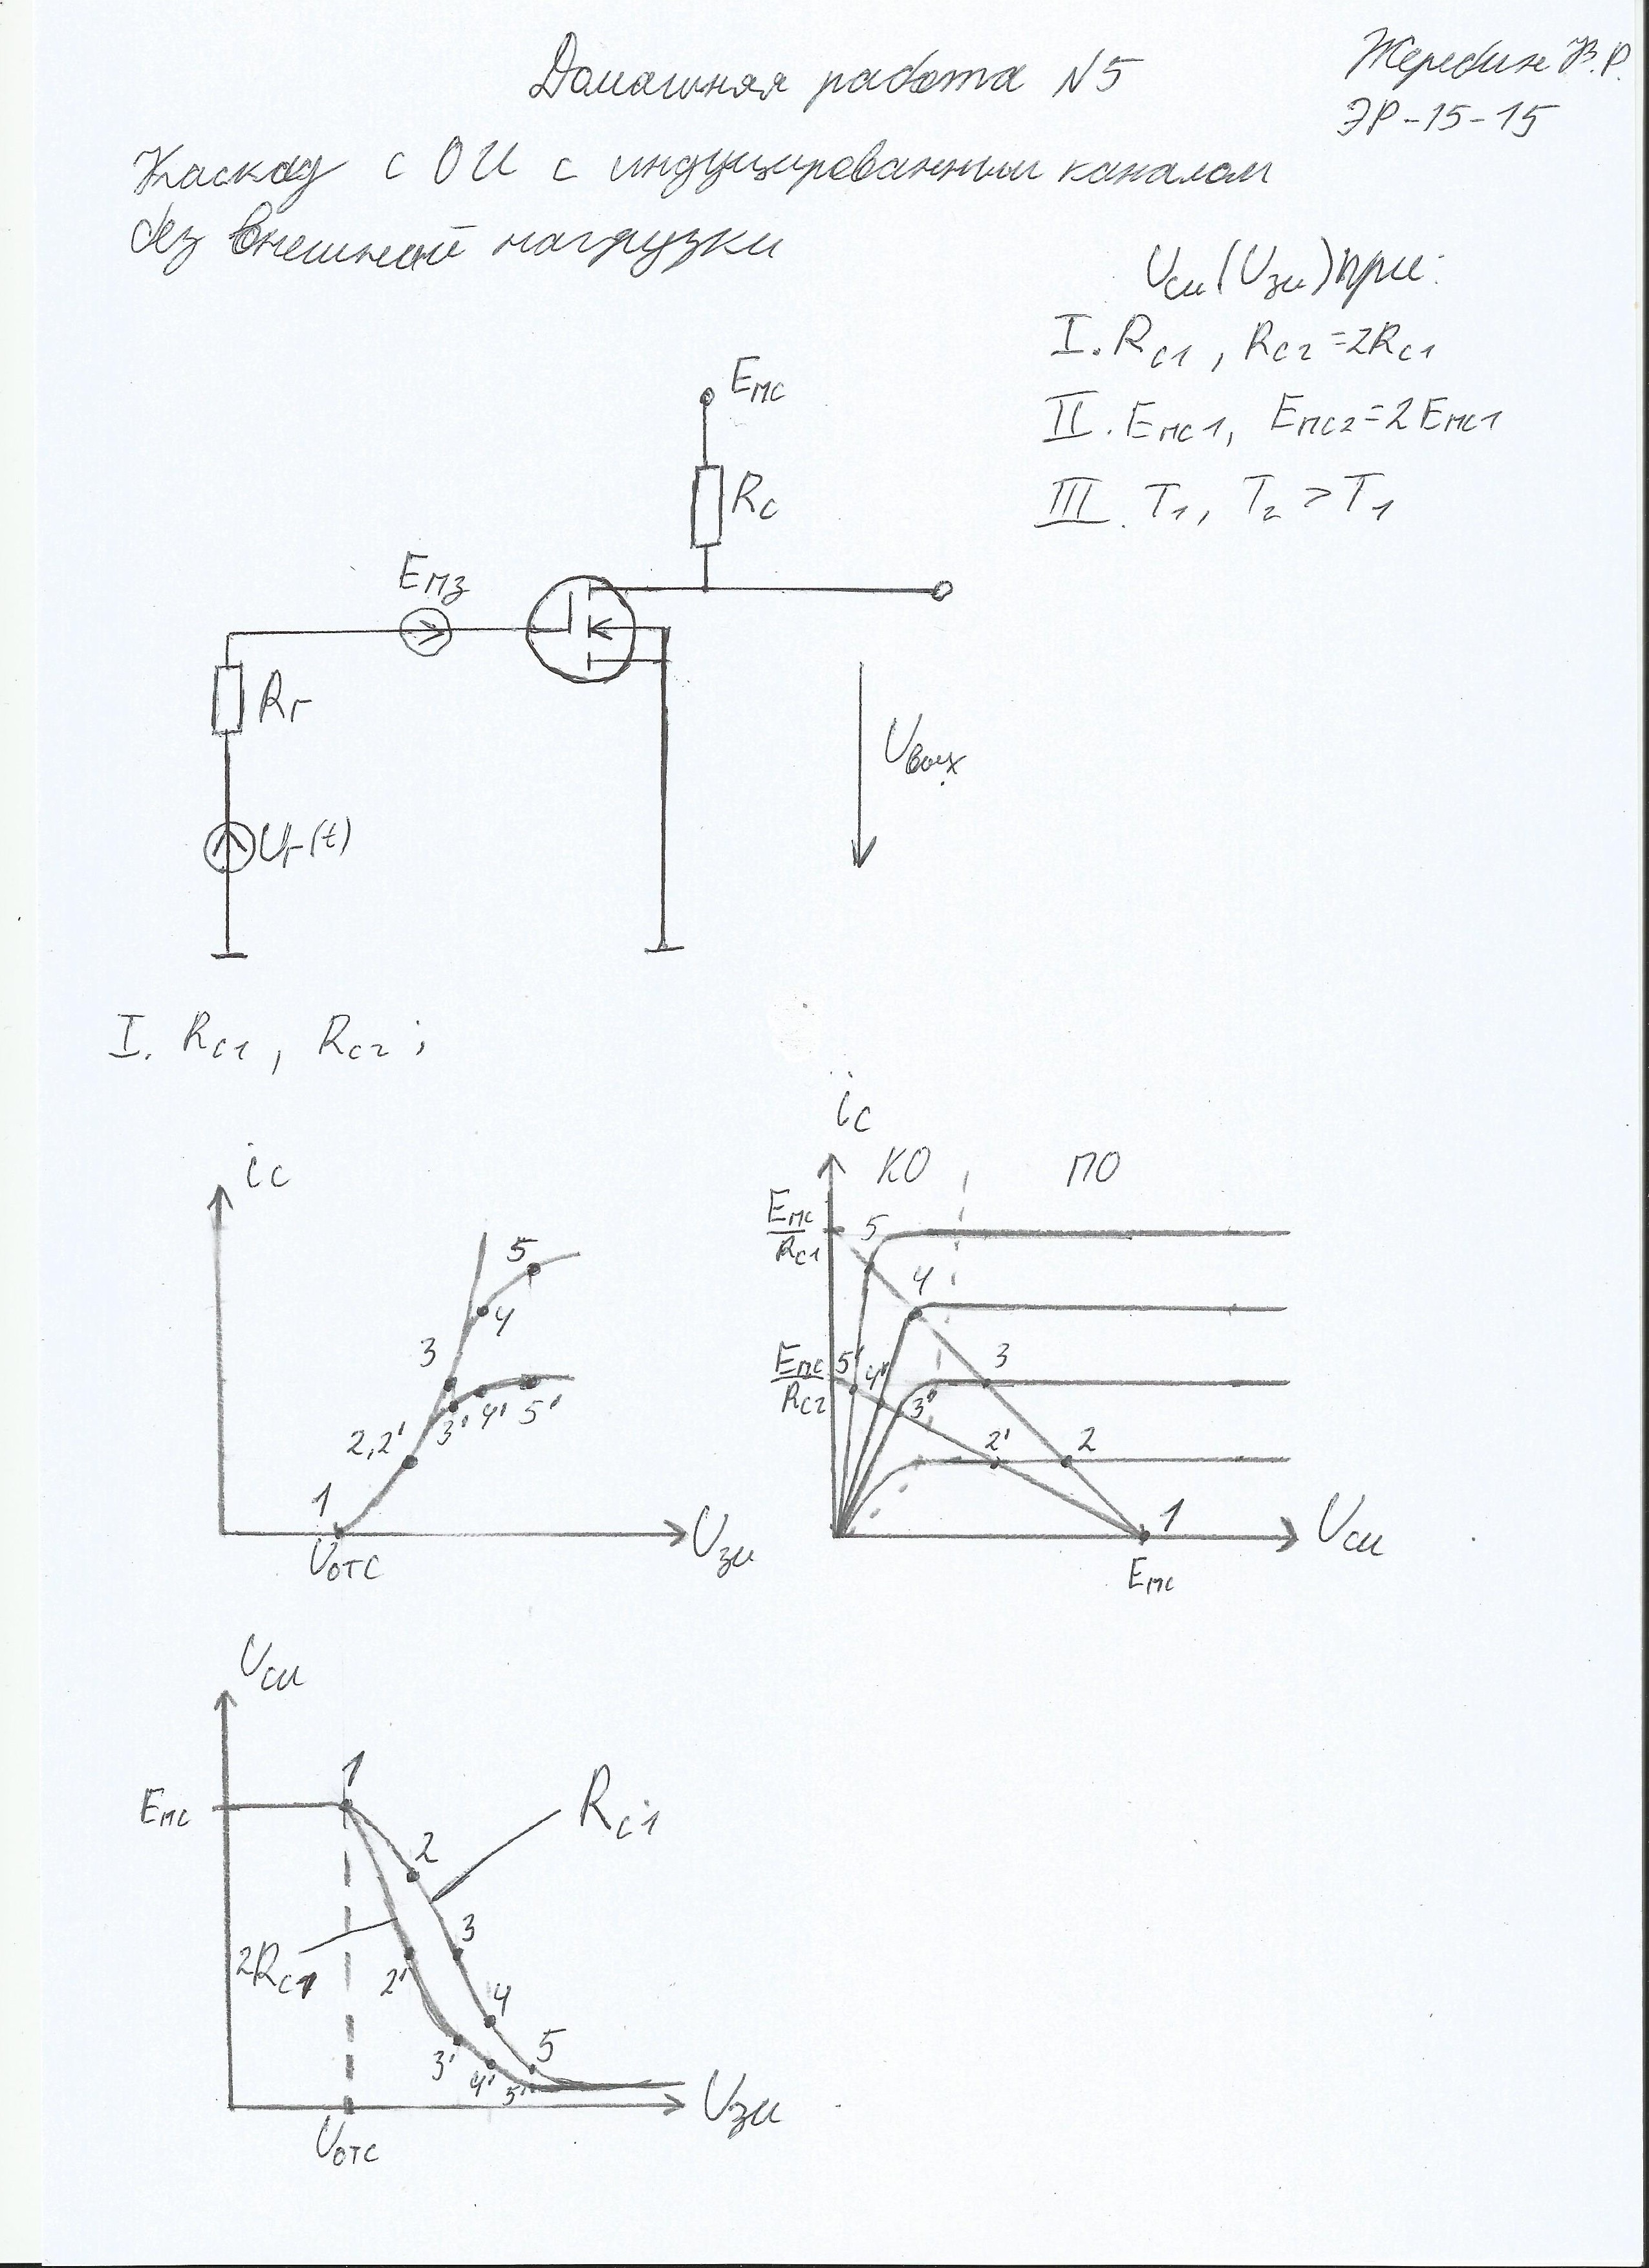 Домашняя работа N5
Жеребин В.Р.
ЭР-15-15
Каскад с ОИ с индуцированным каналом
без внешней нагрузки
Uси(Uзи) при:
I. Rс1, Rс2=2Rс1
II. Eпс1, Eпс2=2Eпс1
III. T1, T2 > T1
Eпс
Rс
Eпз
Rг
Uвых
Uг(t)
I. Rс1, Rс2;
iс
5
4
3
2,2'
3'
4'
5'
1
Uотс
Uзи
iс
КО
ПО
Eпс
Rс1
5
4
3
Eпс
Rс2
5'
4'
3'
2'
2
1
Eпс
Uси
Uси
Eпс
1
Rс1
2
3
2Rс1
2'
4
3'
5
4'
5'
Uзи
Uотс